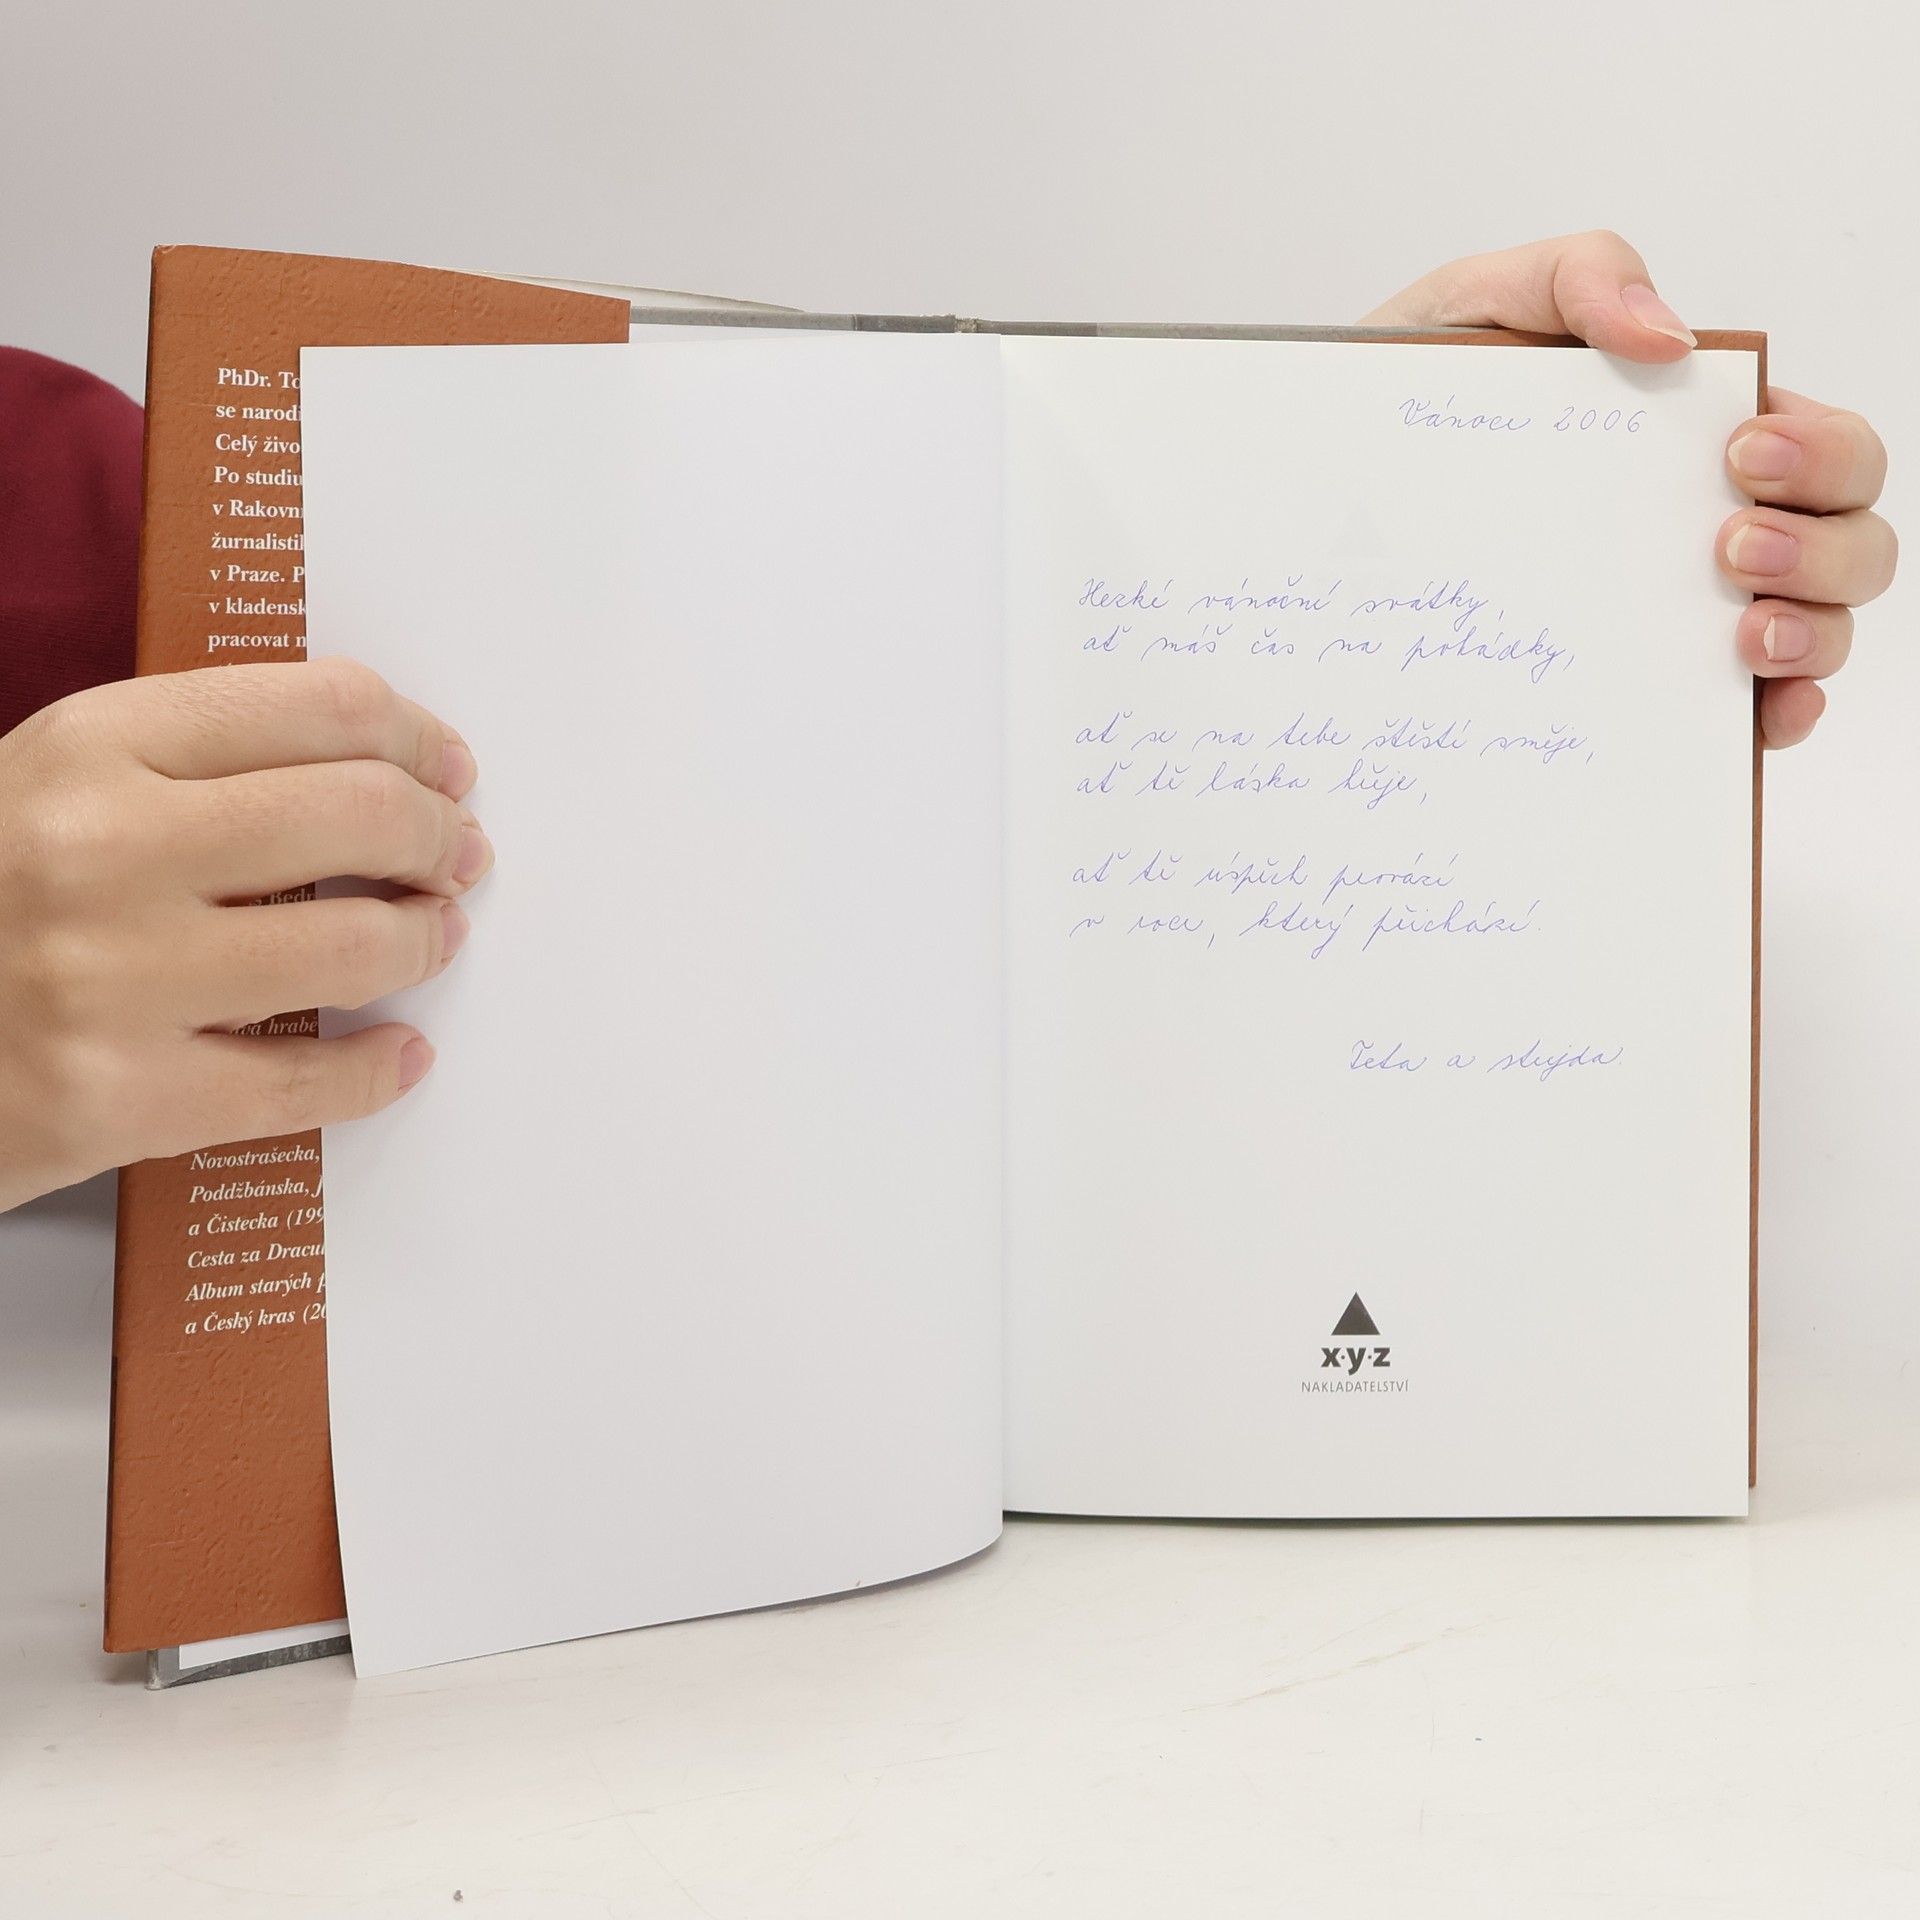 PhDr. To
se narodi
Celý živo
Po studiu
v Rakovn
žurnalisti
v Praze. P
v kladensk
pracovat n
Bedř
hrabě
Novostrašecka,
Poddžbánska, J
a Čistecka (199
Cesta za Dracul
Album starých p
a Český kras (20
Vánoce 2006
Hezké vánoční svátky,
ať máš čas na pohádky,
ať se na tebe štěstí směje,
ať tě láska hřeje,
ať tě úspěch provází
v roce, který přichází.
Teta a strejda.
x·y·z
NAKLADATELSTVÍ